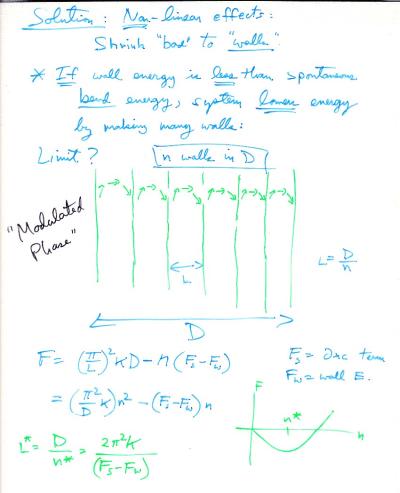 Solution: Non-linear effects:
Shrink "bad" to "walls".
* If wall energy is less than spontaneous
bend energy, system lowers energy
by making many walls:
Limit?
n walls in D
"Modulated
Phase"
L
L = D/n
D
F = (π/L)²KD - n(Fs-Fw)
Fs = ∂xc term
Fw = wall E.
= (π²/D K)n² - (Fs-Fw)n
F
n*
n
L* = D/n* = 2π²K/(Fs-Fw)